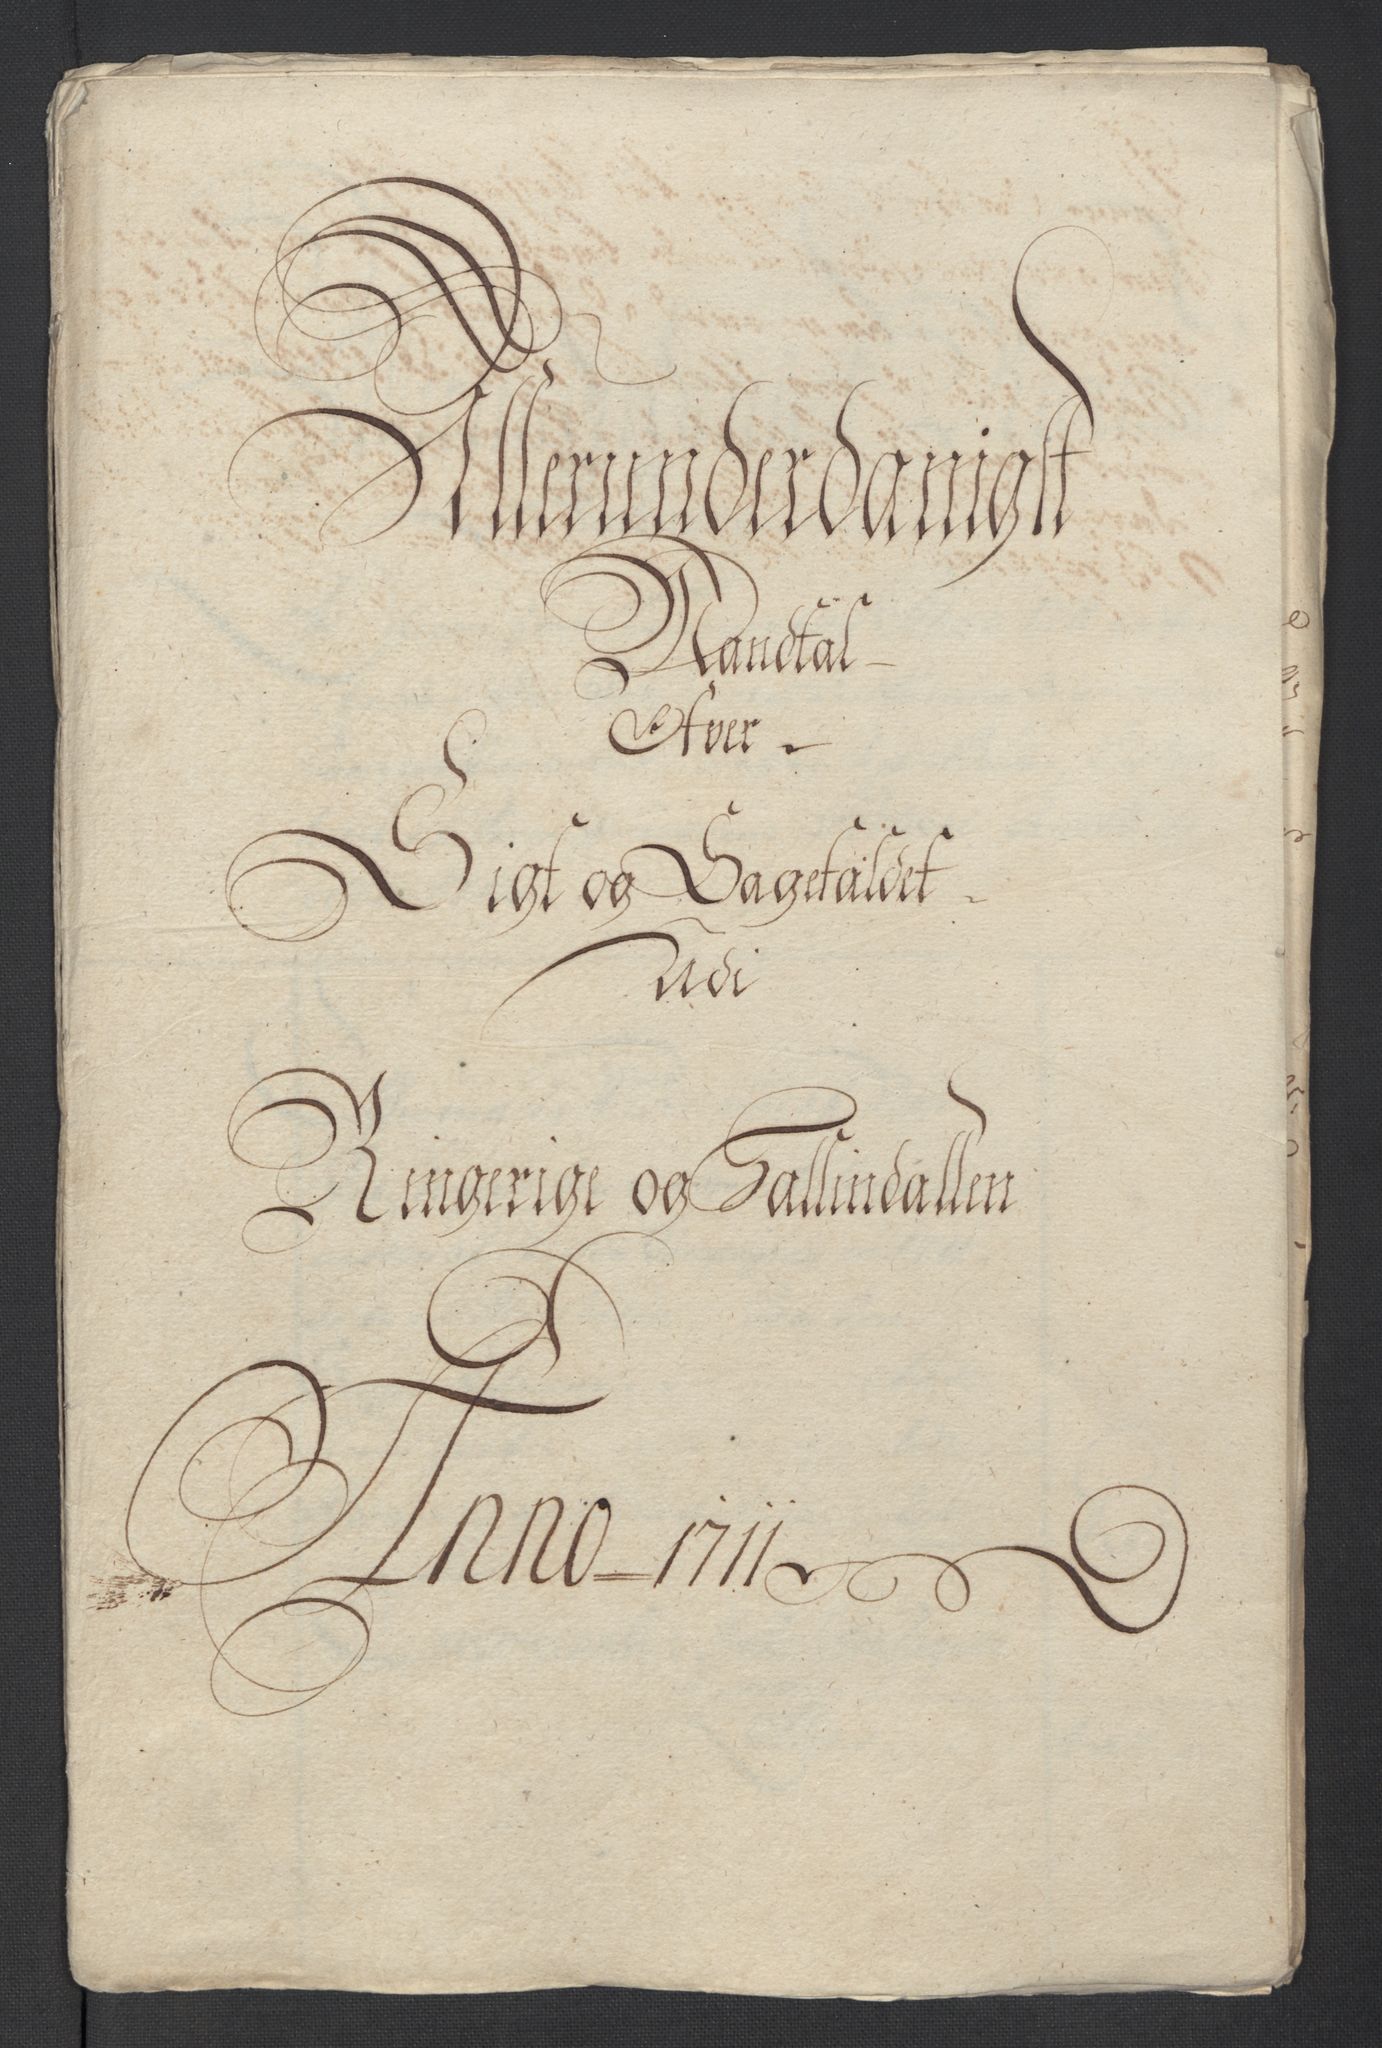 Allerunderdanigst
Mandtal
Ofver
Sigt og Sagefaldet
udi
Ringerige og Hallindallen
Anno 1711